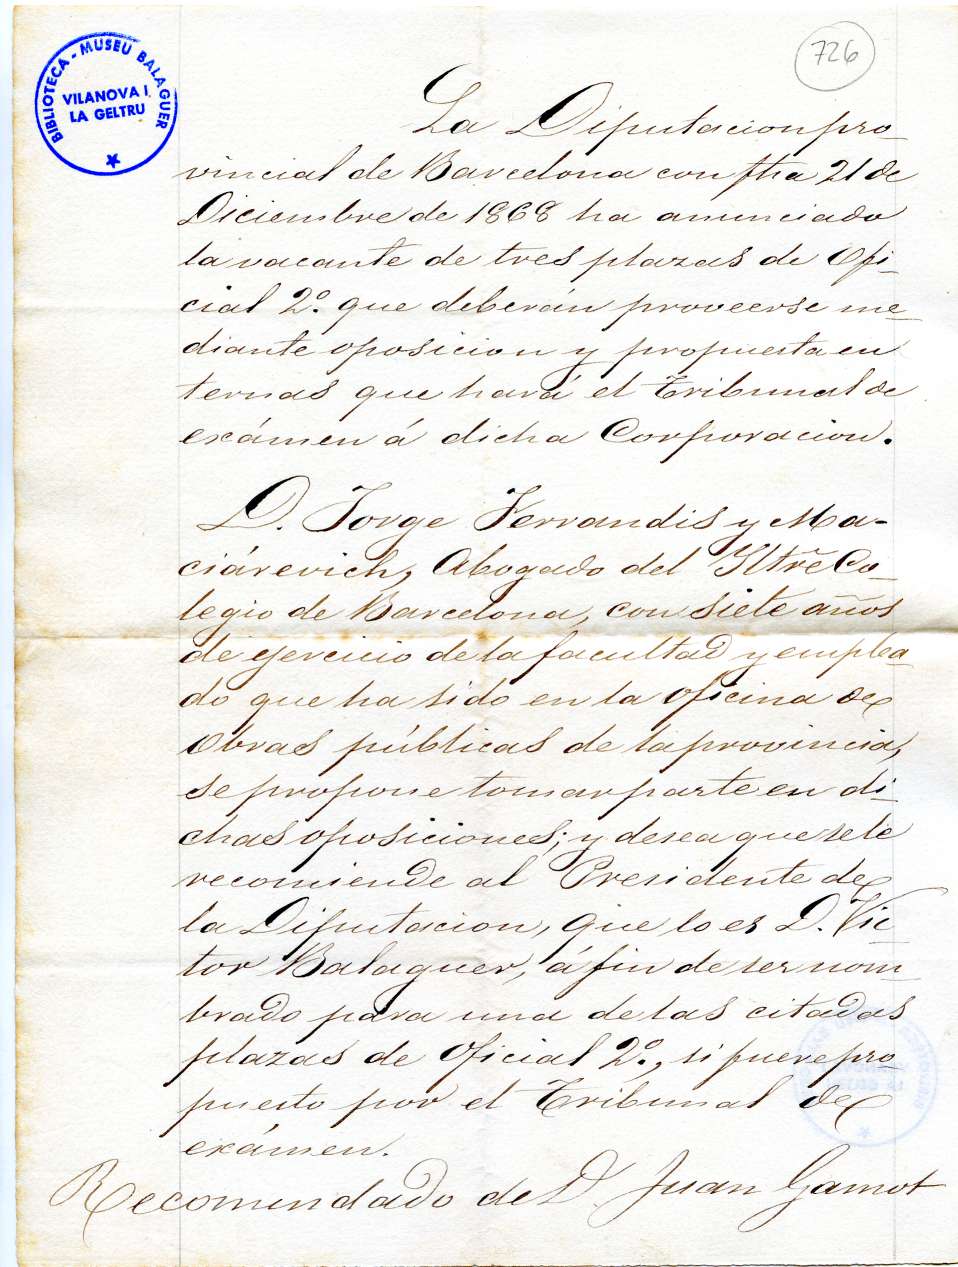 BIBLIOTECA - MUSEU BALAGUER
VILANOVA I
LA GELTRU
726
La Diputacion pro-
vincial de Barcelona con fha 21 de
Diciembre de 1868 ha anunciado
la vacante de tres plazas de Ofi-
cial 2º. que deberán proveerse me-
diante oposicion y propuesta en
ternas que hará el Tribunal de
exámen á dicha Corporacion.
D. Jorge Ferrandis y Ma-
ciárevich, Abogado del Iltre Co-
legio de Barcelona, con siete años
de ejercicio de la facultad y emplea-
do que ha sido en la oficina de
Obras públicas de la provincia,
se propone tomar parte en di-
chas oposiciones; y desea que se le
recomiende al Presidente de
la Diputacion, que lo es D. Víc-
tor Balaguer, á fin de ser nom-
brado para una de las citadas
plazas de Oficial 2º., si fuere pro-
puesto por el Tribunal de
exámen.
Recomendado de D. Juan Gamot